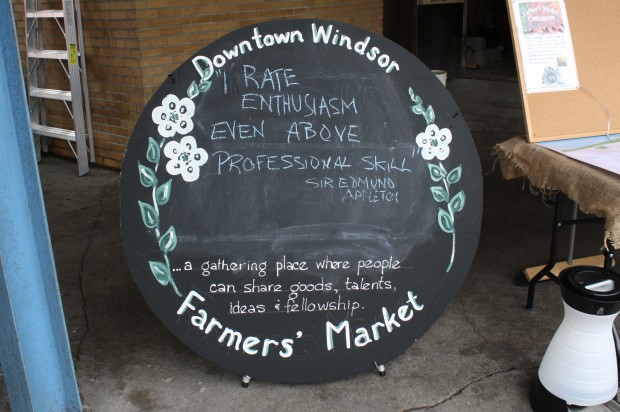 Downtown Windsor
"I RATE
ENTHUSIASM
EVEN ABOVE
PROFESSIONAL SKILL"
SIR EDMUND
APPLETON
...a gathering place where people
can share goods, talents,
ideas & fellowship.
Farmers' Market